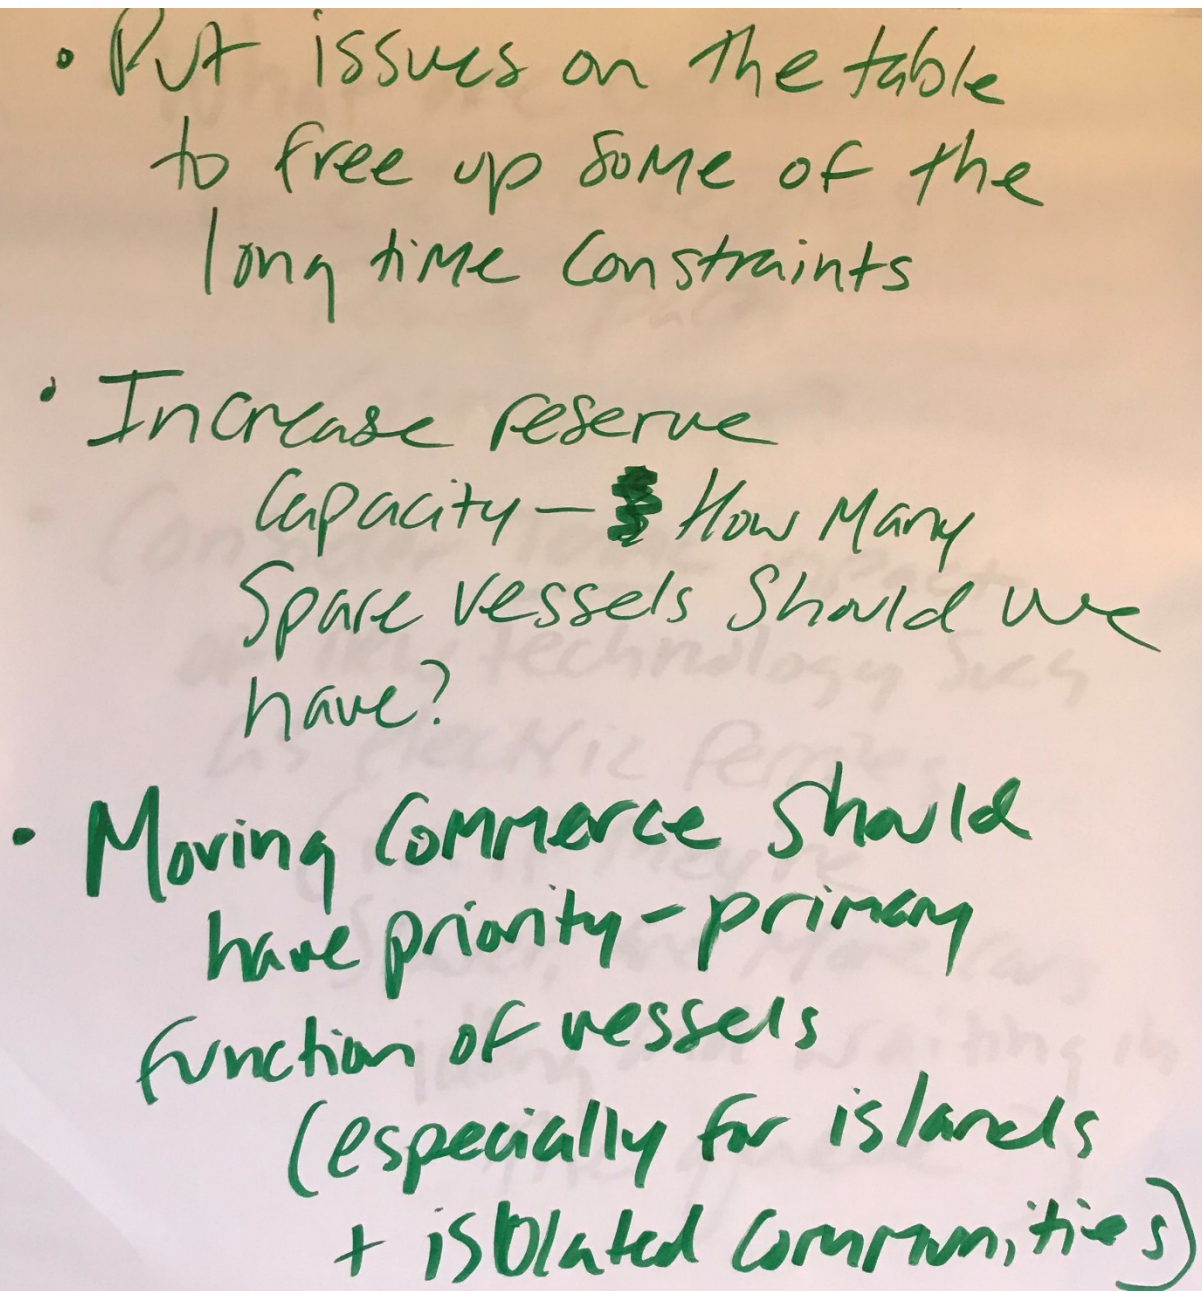 • Put issues on the table
to free up some of the
long time constraints
• Increase reserve
Capacity - How Many
Spare vessels Should we
have?
• Moving Commerce should
have priority - primary
function of vessels
(especially for islands
+ isolated communities)